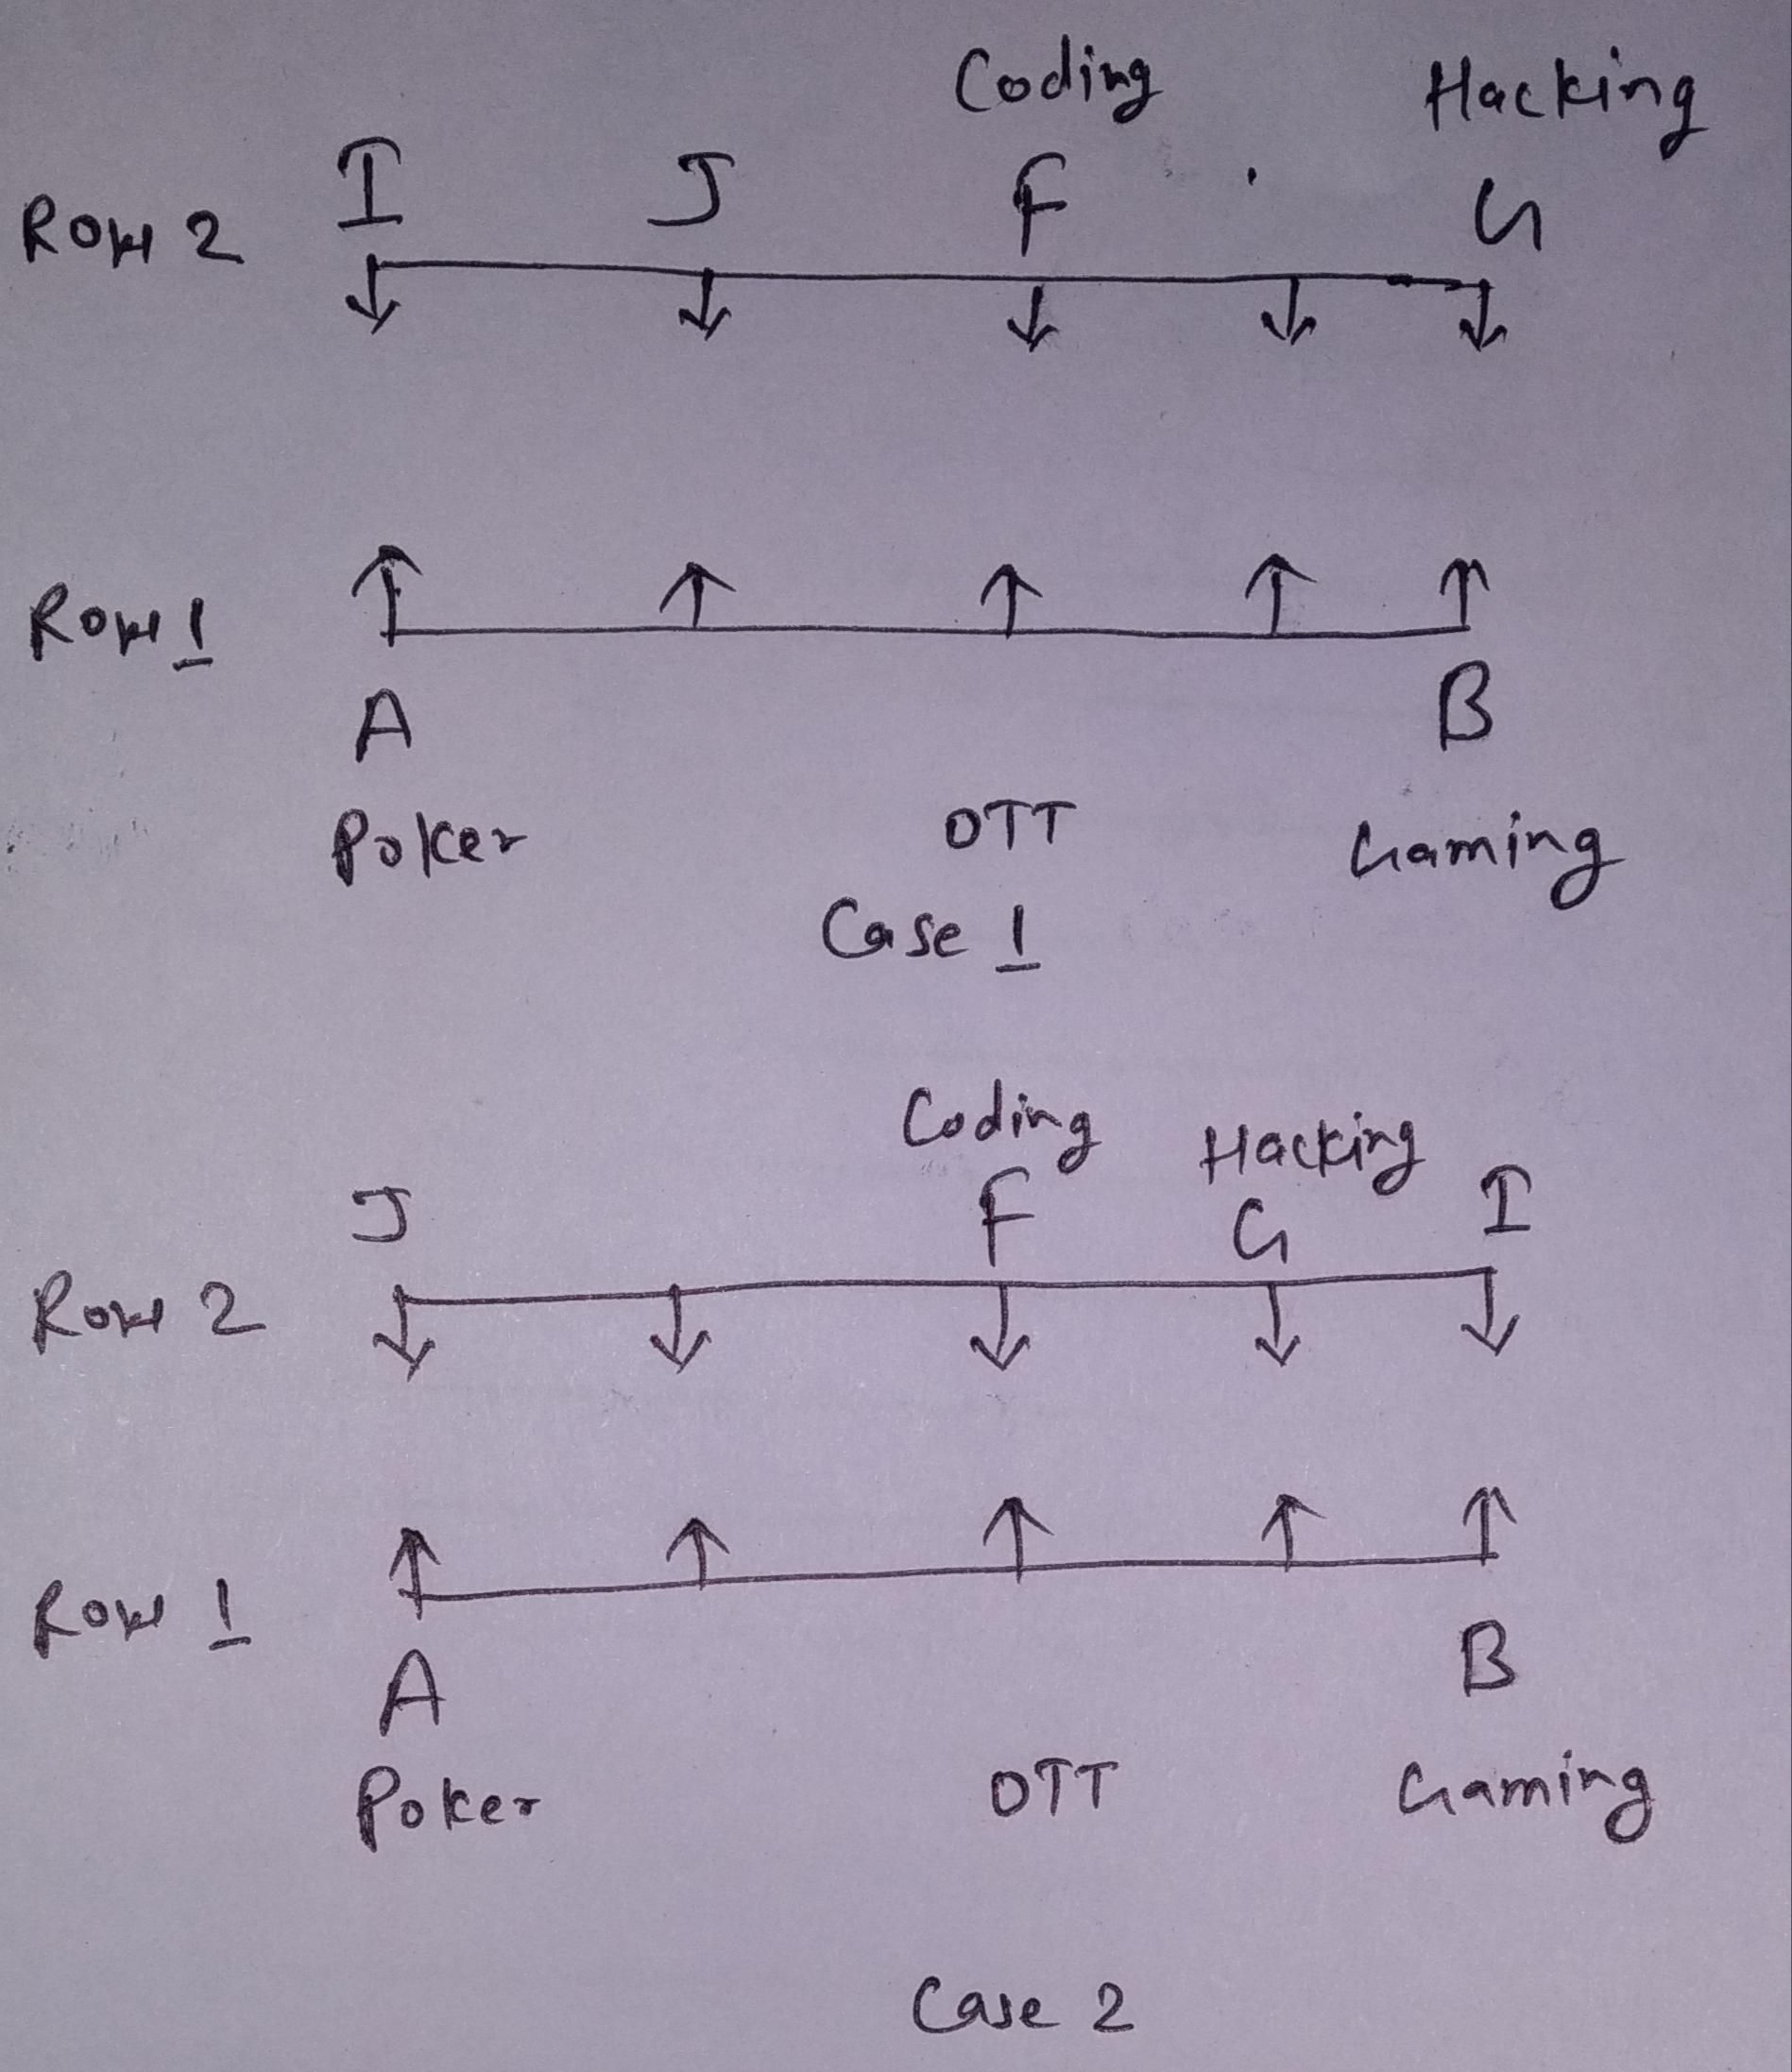 Coding Hacking
Row 2 I J F G
Row 1
A B
Poker OTT Gaming
Case 1
Coding Hacking
J F G I
Row 2
Row 1
A B
Poker OTT Gaming
Case 2